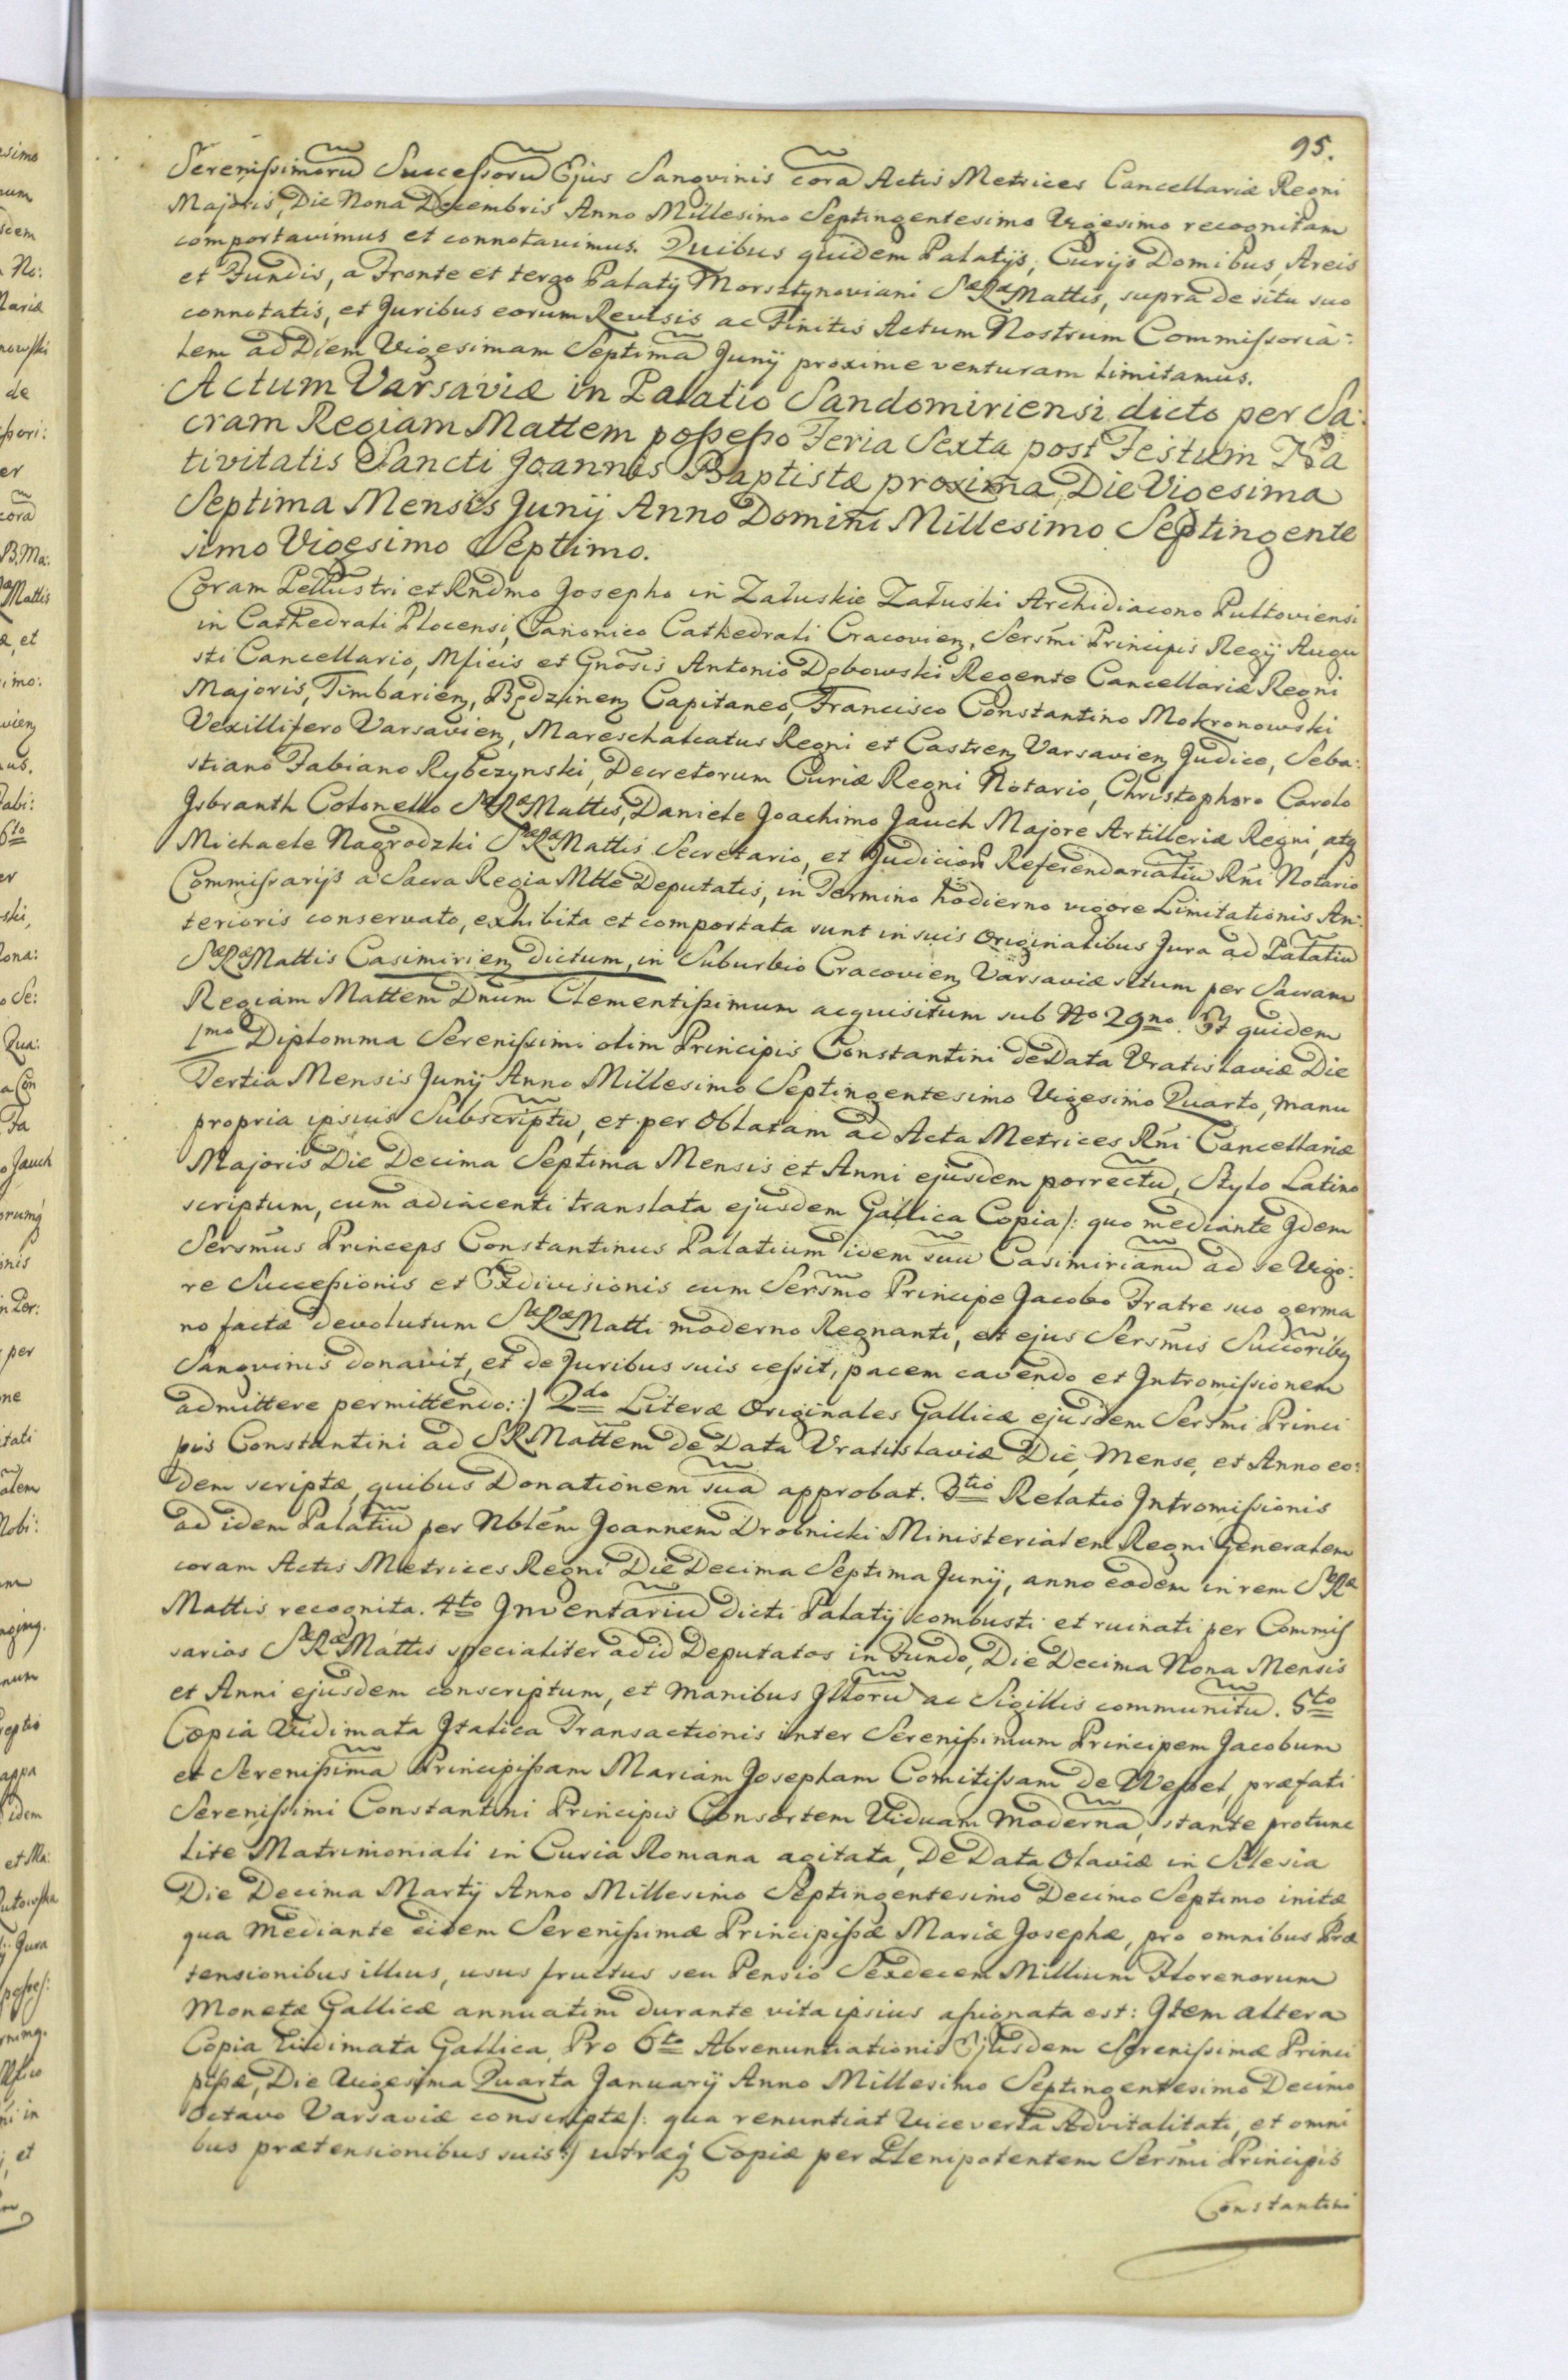 95.
Serenissimorũ Successorũ Ejus Sangvinis corã Actis Metrices Cancellariæ Regni
Majoris, Die Nona Decembris Anno Millesimo Septingentesimo Vigesimo recognitam
comportavimus et connotavimus. Quibus quidem Palatijs, Curijs Domibus, Areis
et Fundis, a Fronte et tergo Palatij Morsztynoviani SæRæMattis, supra de situ suo
connotatis, et Juribus eorum Revisis ac Finitis Actum Nostrum Commissoria:
lem ad Diem Vigesimam Septimã Junij proxime venturam limitamus.
Actum Varsaviæ in Palatio Sandomiriensi dicto per Sa:
cram Regiam Mattem possesso Feria Sexta post Festum Na
tivitatis Sancti Joannis Baptistæ proxima, Die Vigesima
Septima Mensis Junij Anno Domini Millesimo Septingente
simo Vigesimo Septimo.
Coram Pellustri et Rndmo Josepho in Załuskie Załuski Archidiacono Pultoviensi
in Cathedrali Plocensi, Canonico Cathedrali Cracovien, Sersmi Principis Regij Augu
sti Cancellario, Mficis et Gnosis Antonio Dębowski Regente Cancellariæ Regni
Majoris, Timbarien, Będzinen Capitaneo, Francisco Constantino Mokronowski
Vexillifero Varsavien, Mareschalcatus Regni et Castren Varsavien Judice, Seba:
stiano Fabiano Rybczynski, Decretorum Curiæ Regni Notario, Christophoro Carolo
Jsbranth Colonello SæRæMattis, Daniele Joachimo Jauch Majore Artilleriæ Regni, atq
Michaele Nagrodzki SæRæMattis Secretario, et Judicior Referendariatũ Rni Notario
Commissarijs a Sacra Regia Mtte Deputatis, in Termino hodierno vigore Limitationis An:
terioris conservato, exhibita et comportata sunt in suis Originalibus Jura ad Palatiũ
SæRæMattis Casimirien dictum, in Suburbio Cracovien Varsaviæ situm per Sacram
Regiam Mattem Dnum Clementissimum acquisitum sub No 29no. Et quidem
1mo Diplomma Serenissimi olim Principis Constantini de Data Vratislaviæ Die
Tertia Mensis Junij Anno Millesimo Septingentesimo Vigesimo Quarto, manu
propria ipsius Subscriptũ, et per Oblatam ad Acta Metrices Rni Cancellariæ
Majoris Die Decima Septima Mensis et Anni ejusdem porrectũ, Stylo Latino
scriptum, cum adiacenti translata ejusdem Gallica Copia /: quo mediante Jdem
Sersmus Princeps Constantinus Palatium idem suũ Casimirianũ ad se Vigo:
re Successionis et Exdivisionis cum Sersmo Principe Jacobo Fratre suo germa
no factæ devolutum SæRæMatti moderno Regnanti, et ejus Sersmis Succoribq
Sangvinis donavit, et de Juribus suis cessit, pacem cavendo et Jntromissionem
admittere permittendo: :/ 2do Literæ Originales Gallicæ ejusdem Sersmi Princi
pis Constantini ad SRMattem de Data Vratislaviæ Die, Mense, et Anno eo:
dem scriptæ, quibus Donationem suã approbat. 3tio Relatio Jntromissionis
ad idem Palatiũ per Nblem Joannem Drobnicki Ministerialem Regni Generalem
coram Actis Metrices Regni Die Decima Septima Junij, anno eodem in rem SæRæ
Mattis recognita. 4to Jnventariũ dicti Palatij combusti et ruinati per Commis
sarios SæRæMattis specialiter ad id Deputatos in Fundo, Die Decima Nona Mensis
et Anni ejusdem conscriptum, et manibus Jllorũ ac Sigillis communitũ. 5to
Copia Vidimata Jtalica Transactionis inter Serenissimum Principem Jacobum
et Serenissimã Principissam Mariam Josepham Comitissam de Wessel, præfati
Serenissimi Constantini Principis Consortem Viduam modernã, stante protunc
lite Matrimoniali in Curia Romana agitata, De Data Olaviæ in Silesia
Die Decima Martij Anno Millesimo Septingentesimo Decimo Septimo initæ
qua mediante eidem Serenissimæ Principissæ Mariæ Josephæ, pro omnibus Præ
tensionibus illius, usus fructus seu Pensio Sexdecem Millium Florenorum
Monetæ Gallicæ annuatim durante vita ipsius assignata est: Jtem altera
Copia Vidimata Gallica, Pro 6to Abrenuntiationis Ejusdem Serenissimæ Princi
pissæ, Die Vigesima Quarta Januarij Anno Millesimo Septingentesimo Decimo
Octavo Varsaviæ conscriptæ /: qua renuntiat Viceversa Advitalitati, et omni
bus prætensionibus suis :/ utræq Copiæ per Plenipotentem Sersmi Principis
Constantini